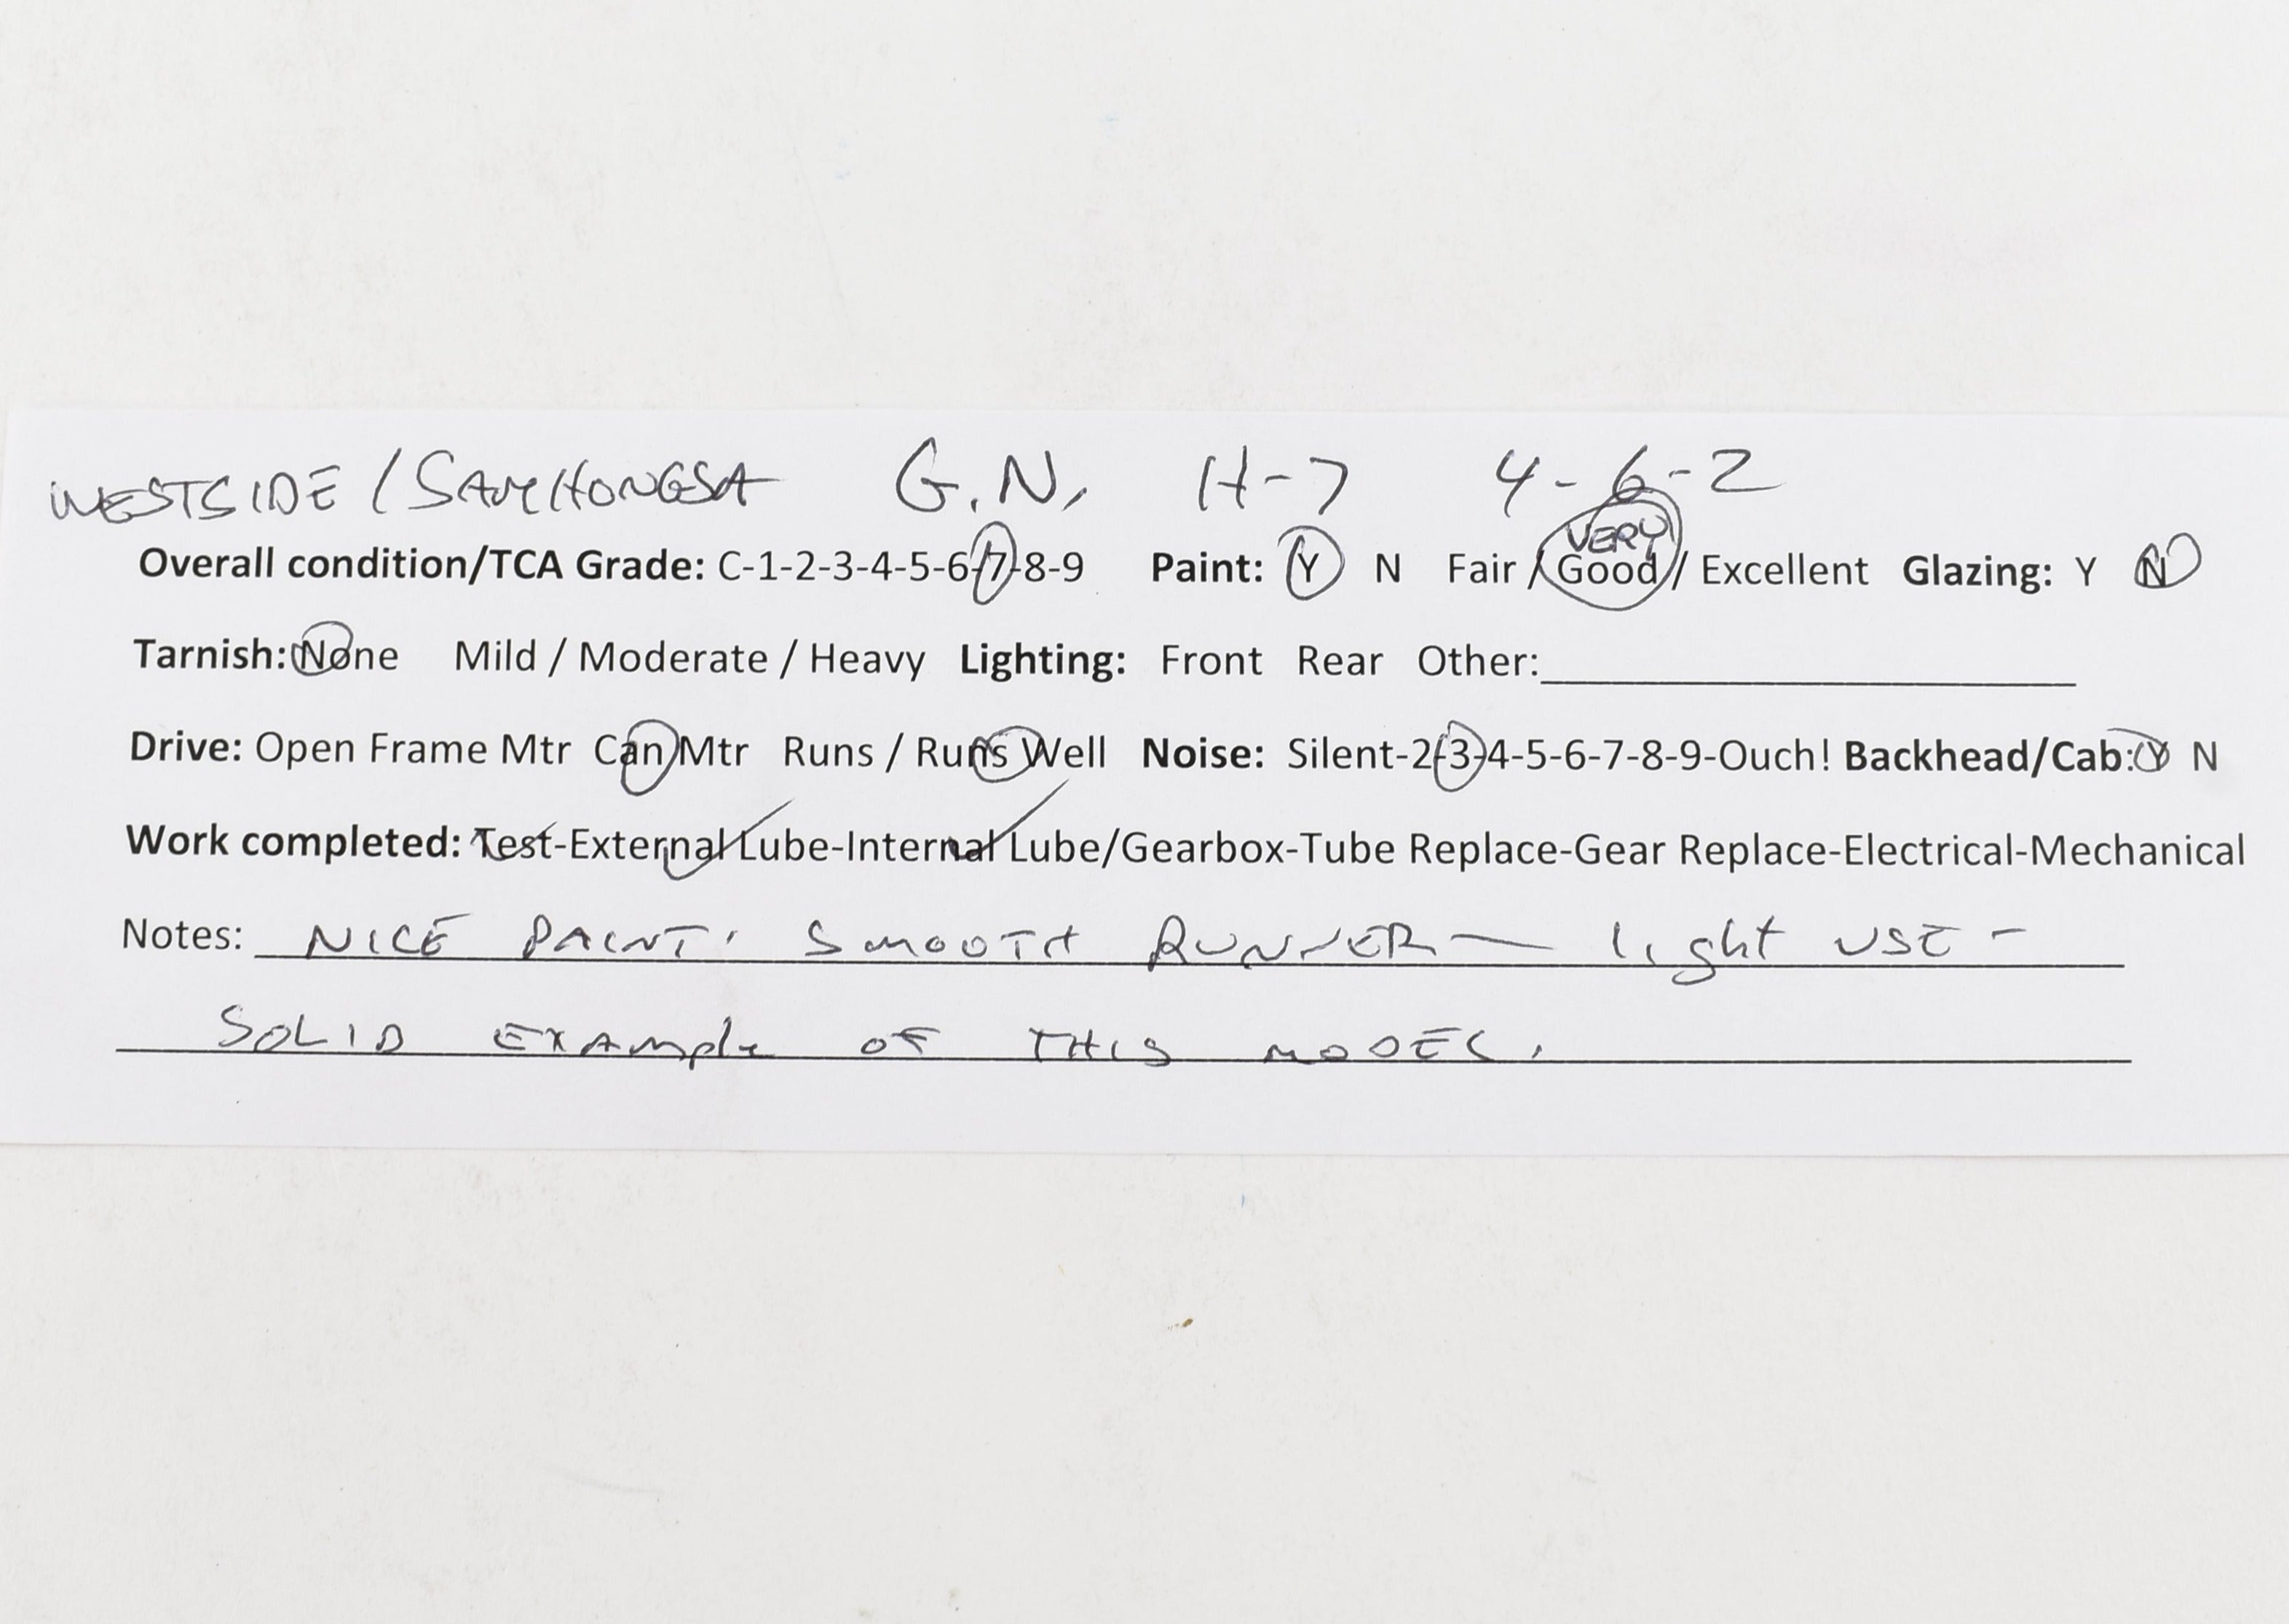 WESTSIDE / SAMHONGSA G.N. H-7 4-6-2
VERY
Overall condition/TCA Grade: C-1-2-3-4-5-6-7-8-9 Paint: Y N Fair / Good / Excellent Glazing: Y N
Tarnish: None Mild / Moderate / Heavy Lighting: Front Rear Other:
Drive: Open Frame Mtr Can Mtr Runs / Runs Well Noise: Silent-2-3-4-5-6-7-8-9-Ouch! Backhead/Cab: Y N
Work completed: Test-External Lube-Internal Lube/Gearbox-Tube Replace-Gear Replace-Electrical-Mechanical
Notes: NICE PAINT. SMOOTH RUNNER — light USE -
SOLID EXAMPLe OF THIS MODEL.